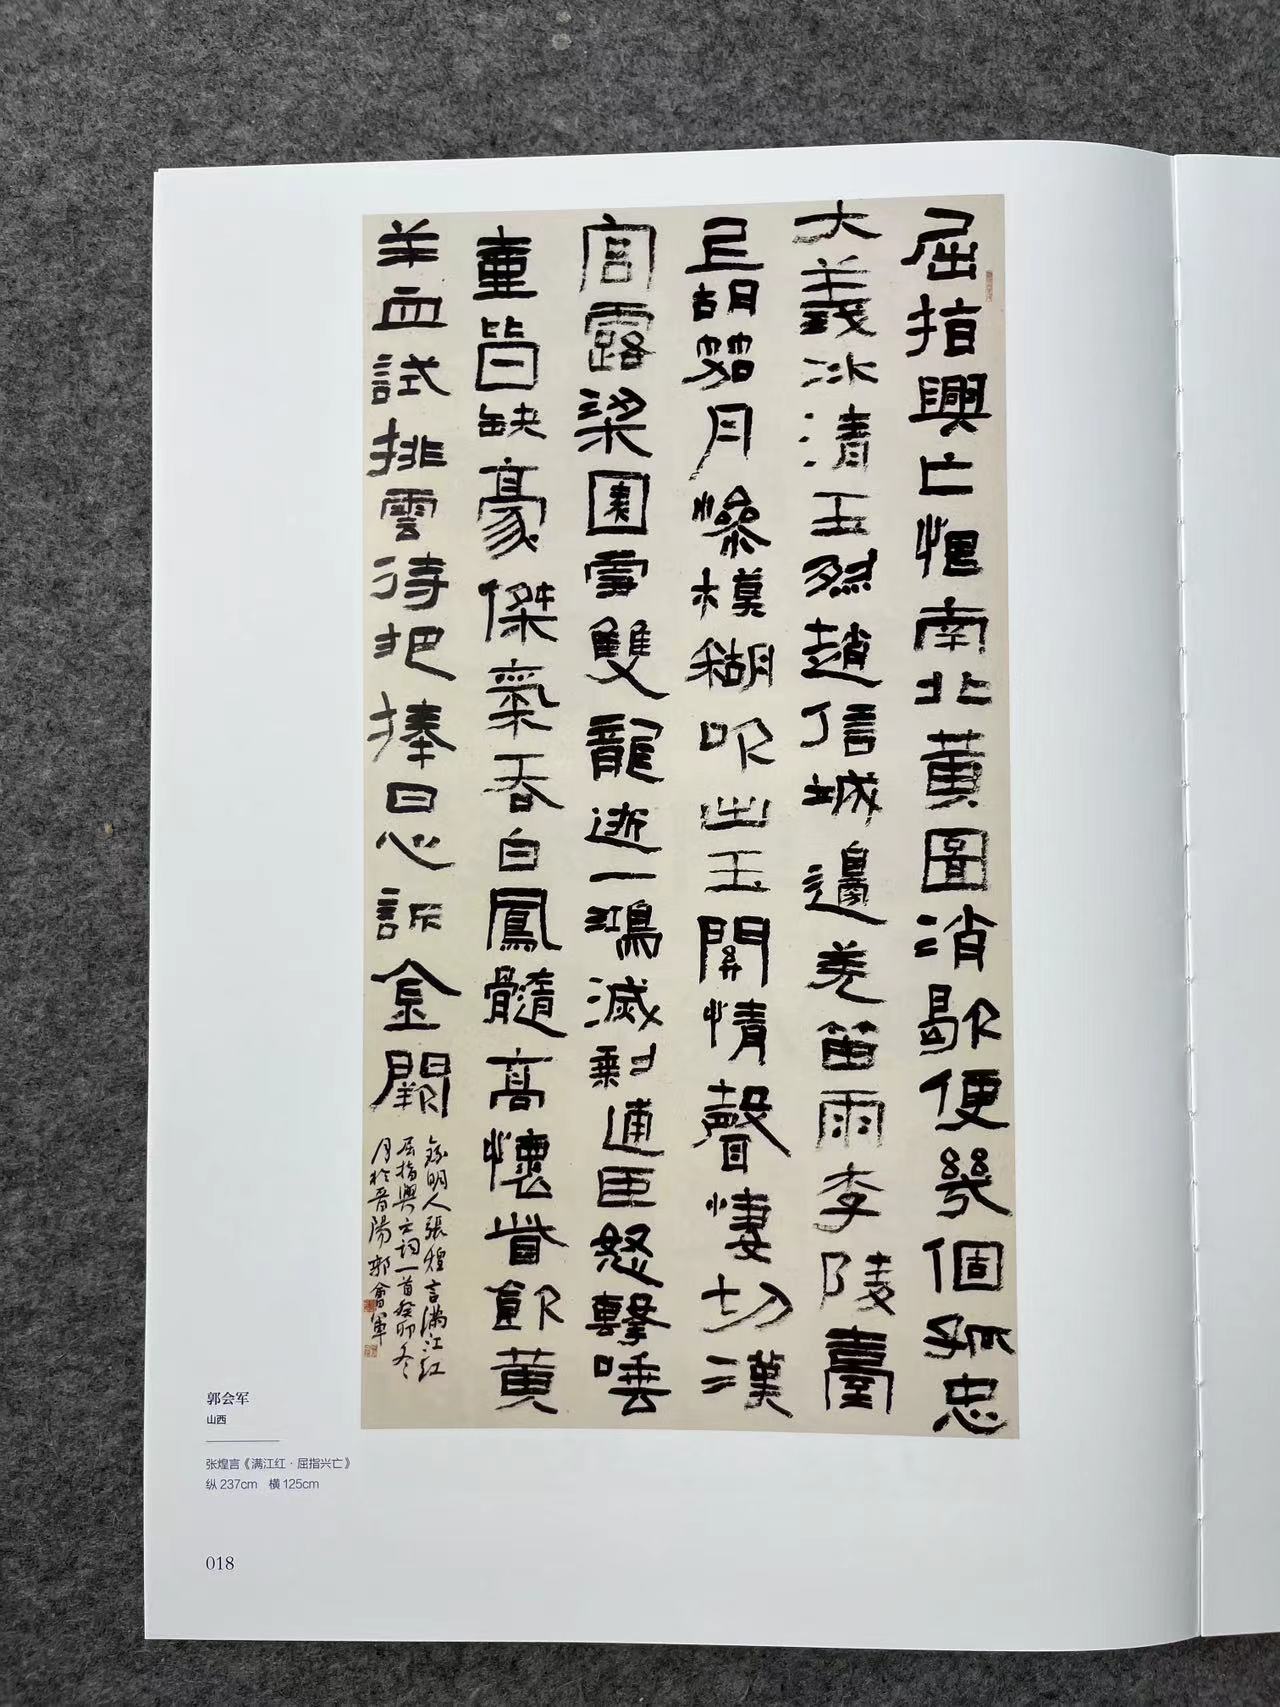 屈指興亡恨南北黄圖消歇便幾個孤忠
大義冰清玉烈趙信城邊羌笛雨李陵臺
上胡笳月慘模糊吹出玉關情聲悽切漢
宫露梁園雪雙龍逝一鴻滅剩逋臣怒擊唾
壺皆缺豪傑氣吞白鳳髓高懷眥飲黄
羊血試排雲待把捧日心訴金闕
錄明人張煌言满江红
屈指興亡詞一首癸卯冬
月於晋陽郭會軍
郭会军
山西
张煌言《满江红·屈指兴亡》
纵237cm 横125cm
018